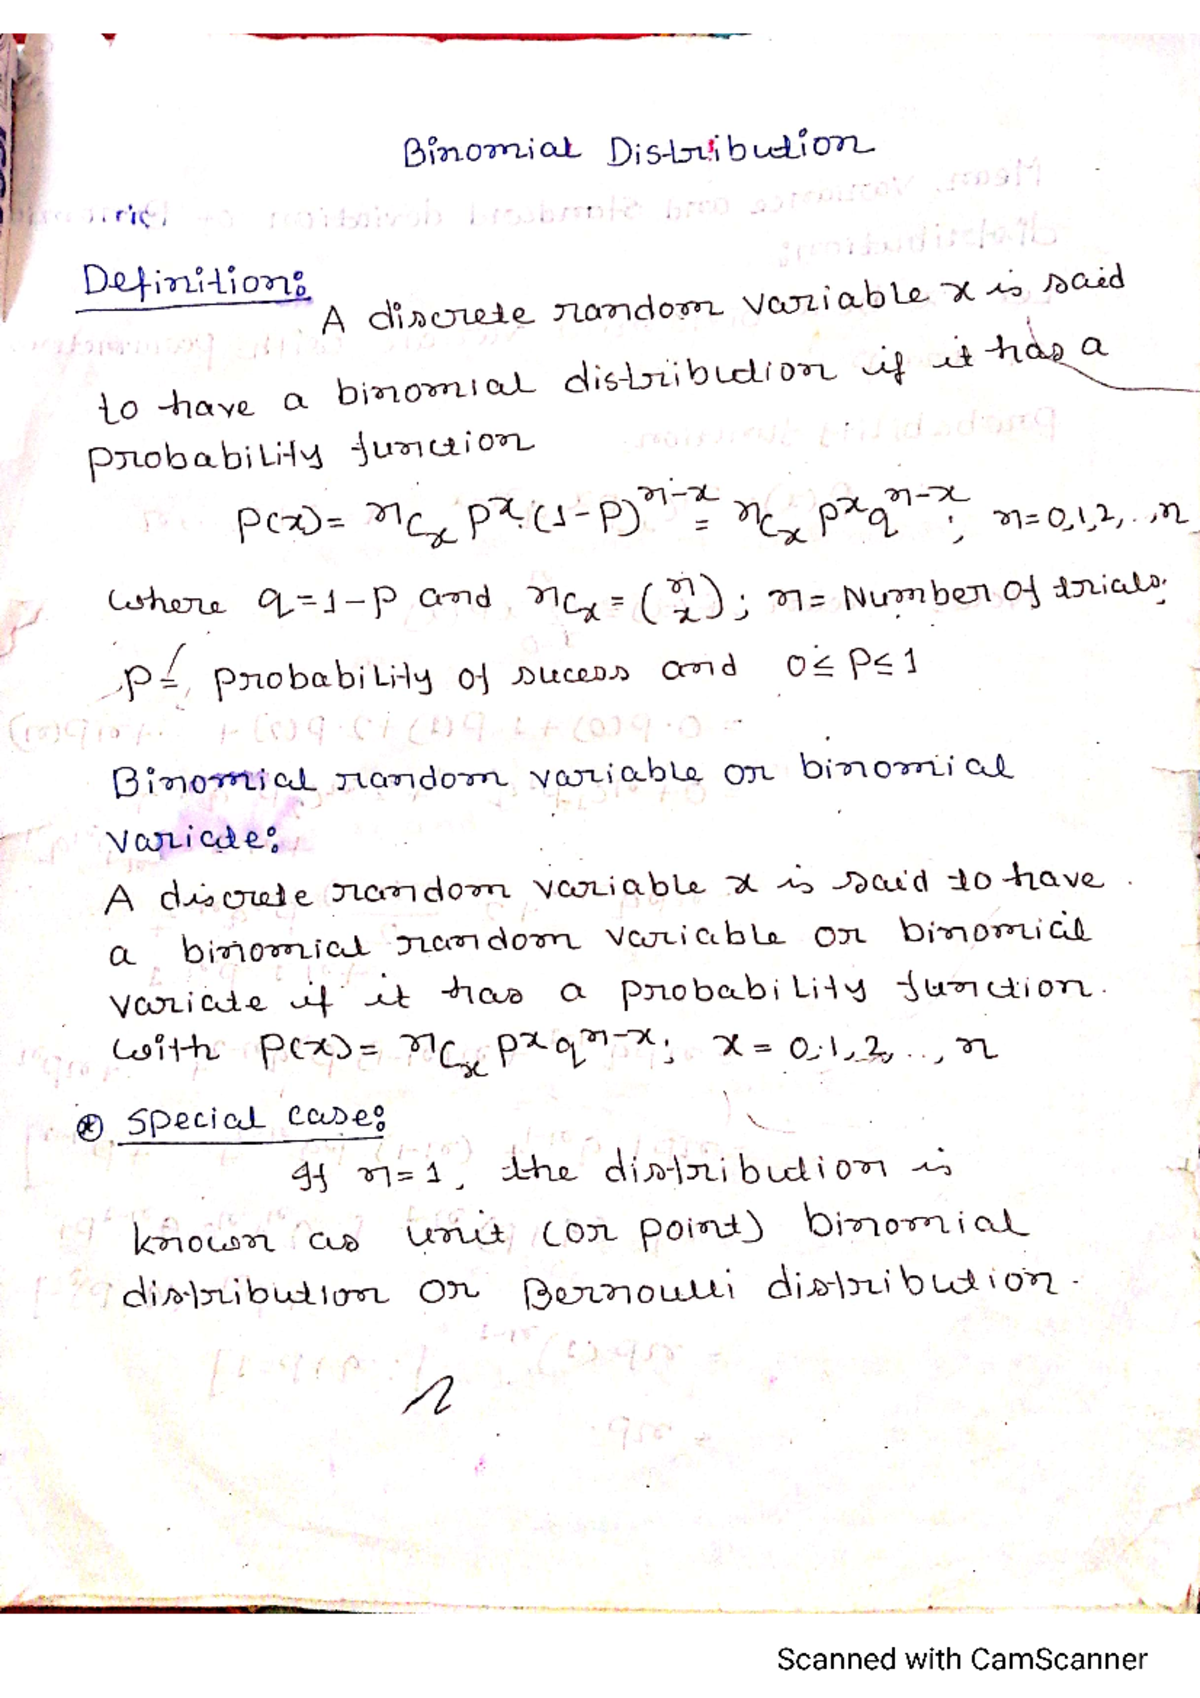 Binomial Distribution
Definition:
A discrete random variable x is said
to have a binomial distribution if it has a
probability function
P(x) = nCx p^x (1-p)^n-x = nCx p^x q^n-x ; n = 0,1,2,..,n
where q = 1-p and nCx = (n x) ; n = Number of trials;
p = probability of sucess and 0 ≤ P ≤ 1
Binomial random variable or binomial
variate:
A discrete random variable x is said to have
a binomial random variable or binomial
variate if it has a probability function.
with P(x) = nCx p^x q^n-x ; x = 0,1,2,..,n
⊛ Special case:
If n=1, the distribution is
known as unit (or point) binomial
distribution or Bernoulli distribution.
Scanned with CamScanner